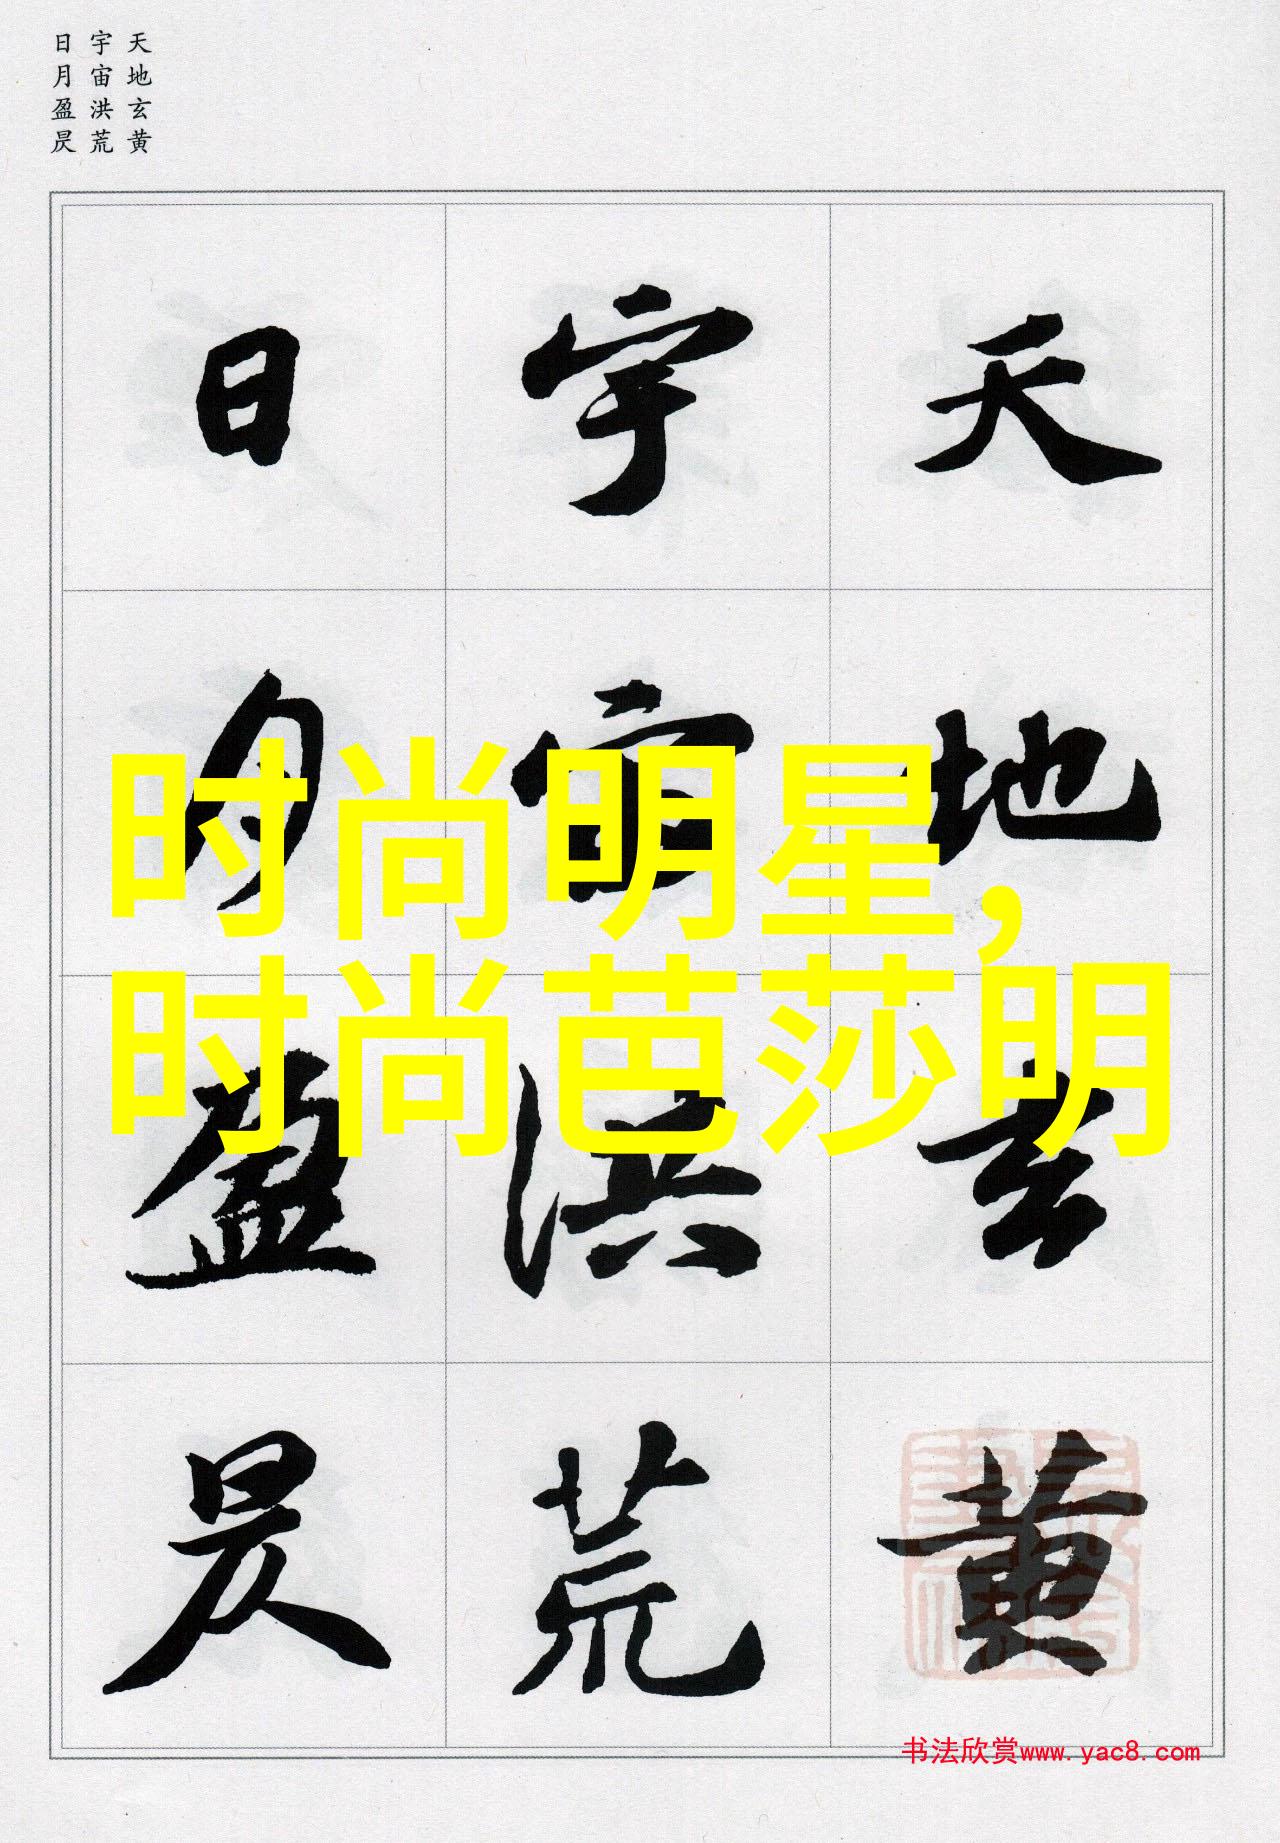 天地玄黄
宇宙洪荒
日月盈昃
天地玄黄
宇宙洪荒
日月盈昃
时尚明星,
时尚芭莎明
书法欣赏www.yac8.com